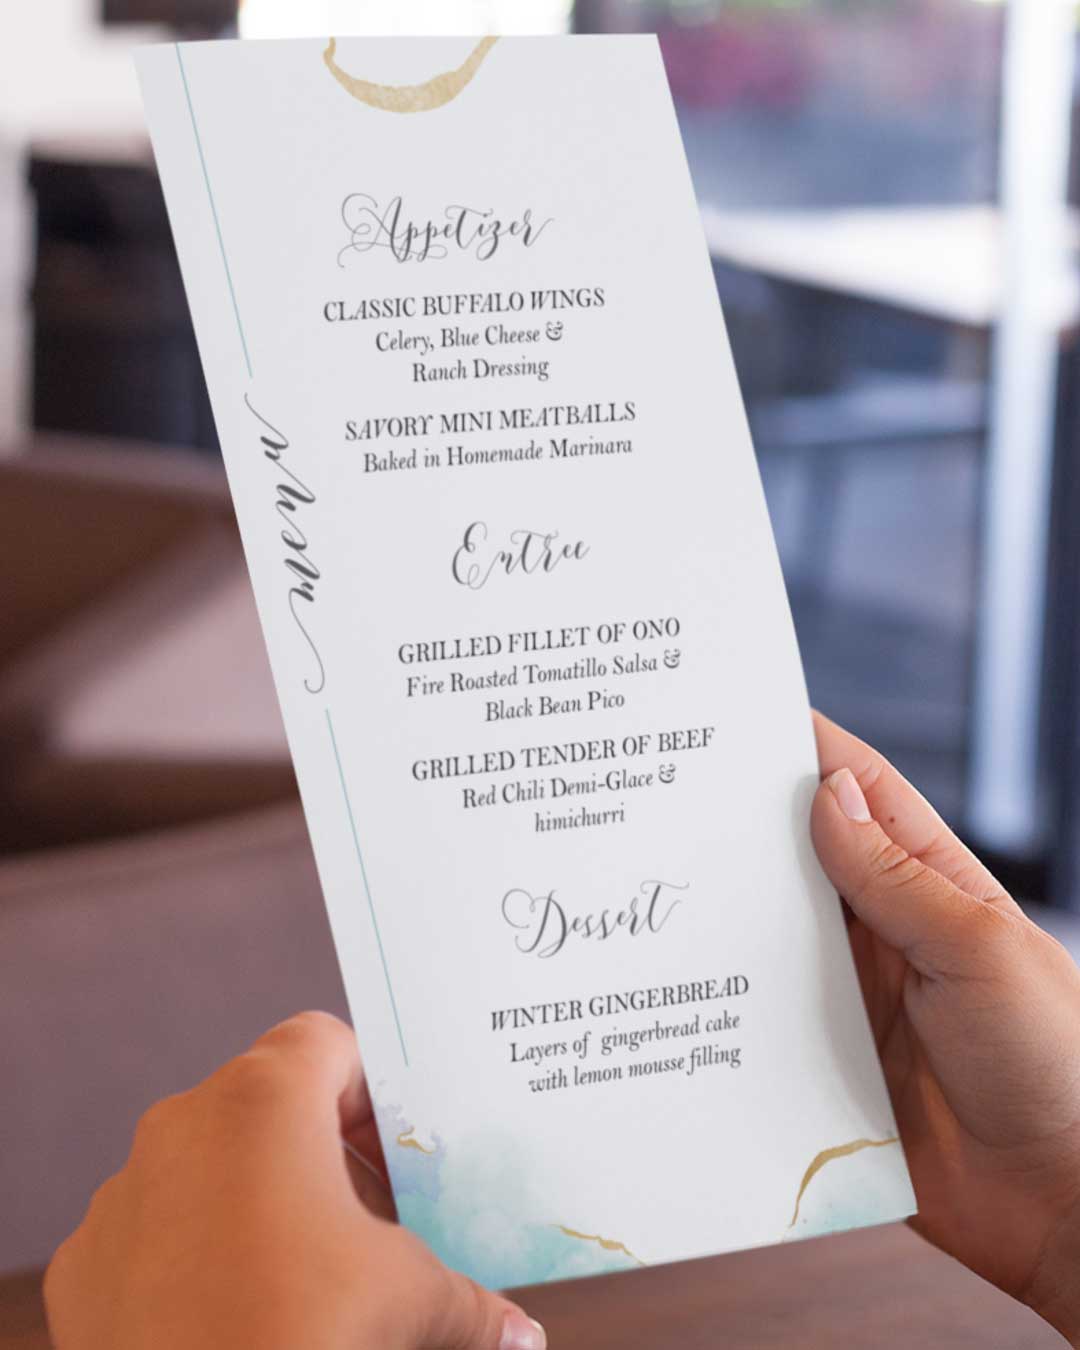 menu
Appetizer
CLASSIC BUFFALO WINGS
Celery, Blue Cheese &
Ranch Dressing
SAVORY MINI MEATBALLS
Baked in Homemade Marinara
Entree
GRILLED FILLET OF ONO
Fire Roasted Tomatillo Salsa &
Black Bean Pico
GRILLED TENDER OF BEEF
Red Chili Demi-Glace &
himichurri
Dessert
WINTER GINGERBREAD
Layers of gingerbread cake
with lemon mousse filling